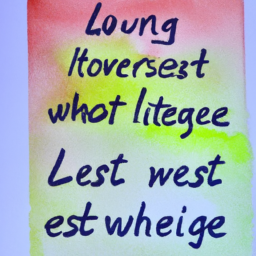 Loung
Itoversest
whot litegee
Lest west
est wheige